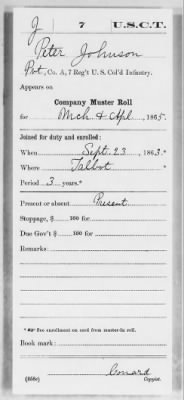 J | 7 | U.S.C.T.
Peter Johnson
Pvt, Co. A, 7 Reg't U. S. Col'd Infantry.
Appears on
Company Muster Roll
for Mch & Apl, 1865.
Joined for duty and enrolled:
When Sept. 23, 1863.*
Where Talbot
Period 3 years.*
Present or absent Present
Stoppage, $ 100 for
Due Gov't $ 100 for
Remarks:
* See enrollment on card from muster-in roll.
Book mark:
Conard
(358c) Copyist.